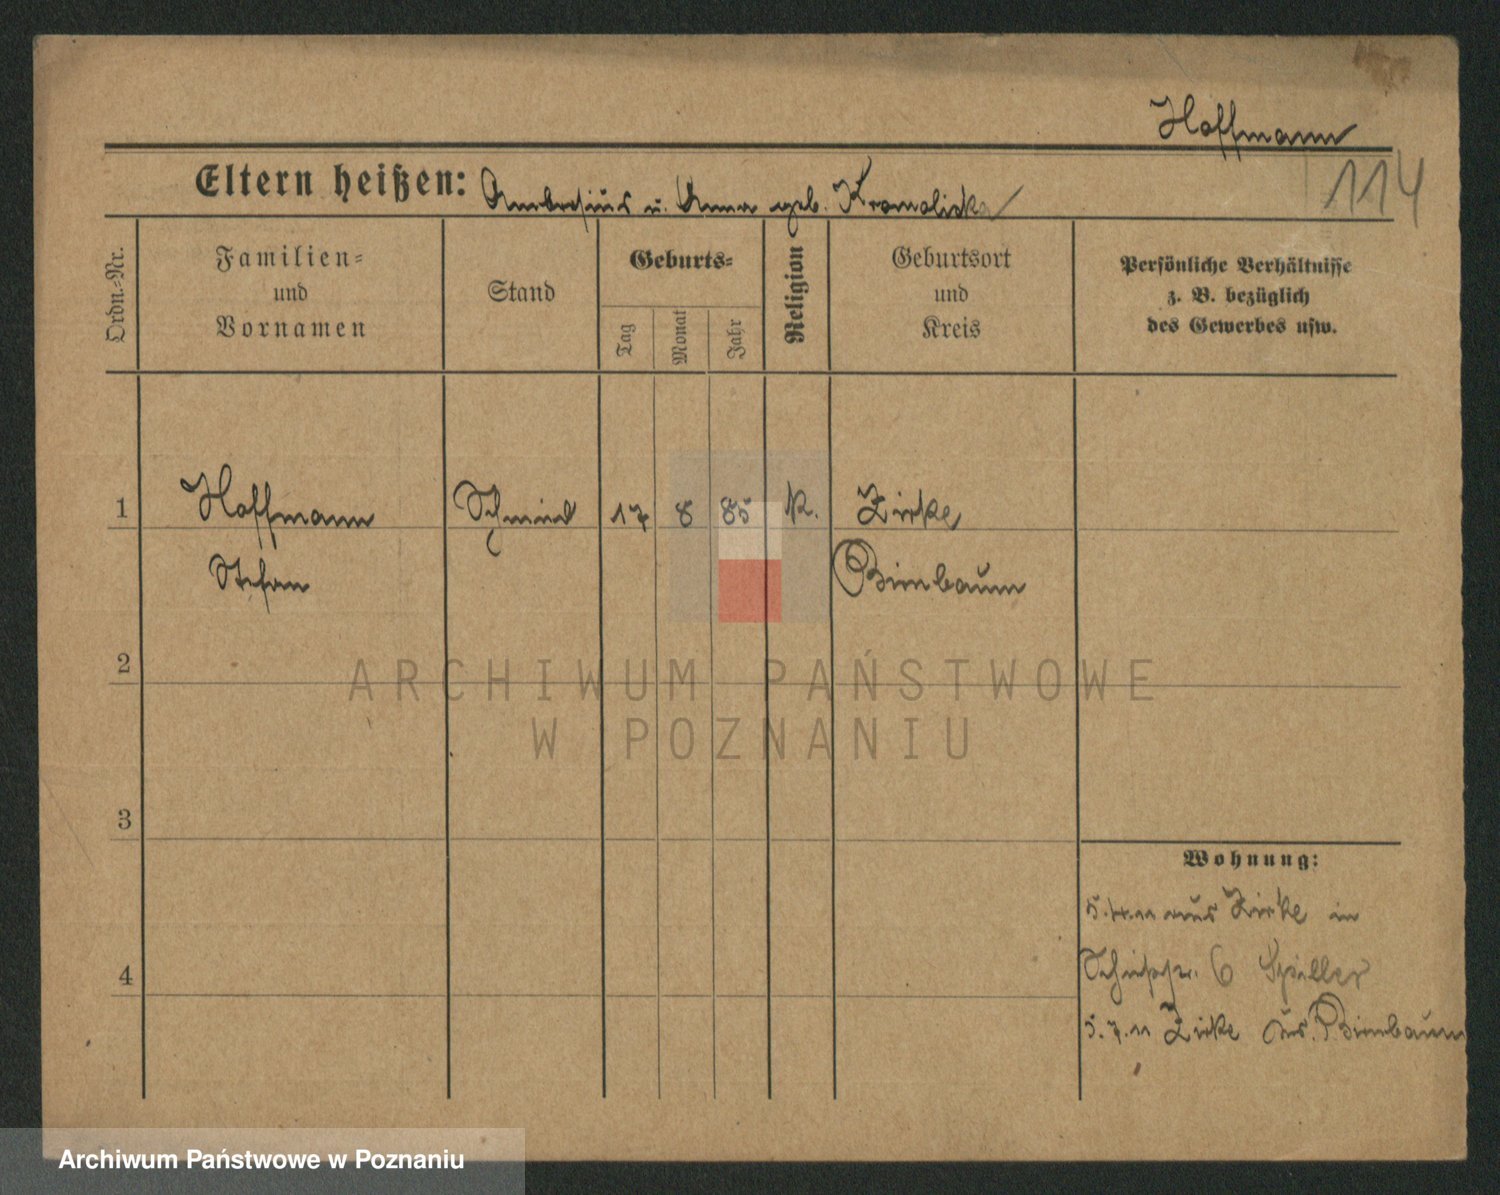 Hoffmann
114
Eltern heißen: Ambrosius u. Anna geb. Kromolicka
Ordn.-Nr.
Familien-
und
Vornamen
Stand
Geburts-
Tag
Monat
Jahr
Religion
Geburtsort
und
Kreis
Persönliche Verhältnisse
z. B. bezüglich
des Gewerbes usw.
1 Hoffmann Schmied 17 8 85 k. Zirke
Stefan Birnbaum
2
ARCHIWUM PAŃSTWOWE
W POZNANIU
3
Wohnung:
5.4.11 aus Zirke in
6 Spiller
4
5.7.11 Zirke Birnbaum
Archiwum Państwowe w Poznaniu